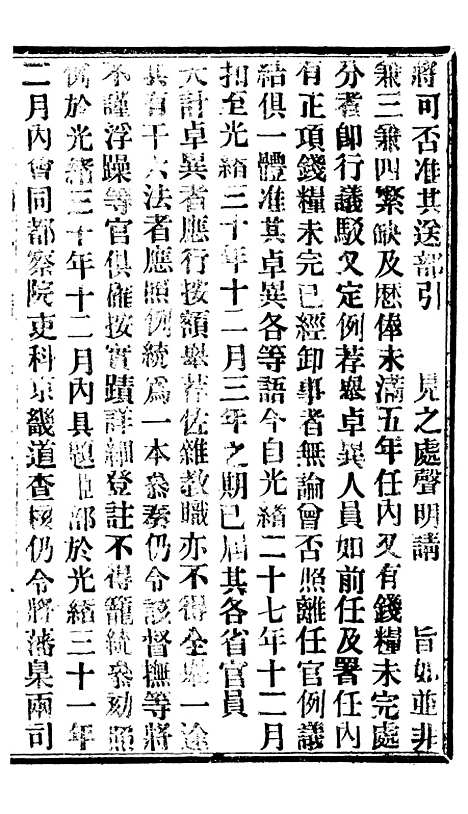 將可否准其送部引　見之處聲明請　旨如並非
兼三兼四繁缺及歷俸未滿五年任內又有錢糧未完處
分者卽行議駁又定例荐舉卓異人員如前任及署任內
有正項錢糧未完已經卸事者無論曾否照離任官例議
結俱一體准其卓異各等語今自光緒二十七年十二月
扣至光緒三十年十二月三年之期已屆其各省官員
大計卓異者應行按額舉荐佐雜教職亦不得全舉一途
其有干六法者應照例統爲一本叅奏仍令該督撫等將
不謹浮躁等官俱確按實蹟詳細登註不得籠統叅劾照
例於光緒三十年十二月內具題臣部於光緒三十一年
二月內會同都察院吏科京畿道查核仍令將藩臬兩司